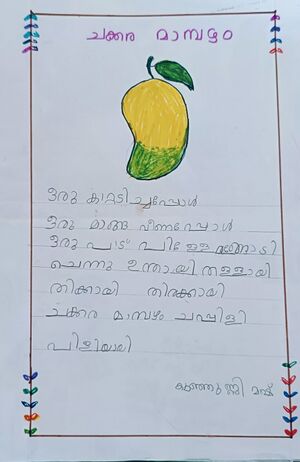 ചക്കര മാമ്പഴം
ഒരു കാറ്റടിച്ചപ്പോൾ
ഒരു മാങ്ങ വീണപ്പോൾ
ഒരു പാട് പിള്ളേരങ്ങോടി
ചെന്നു ഉന്തായി തള്ളായി
തിക്കായി തിരക്കായി
ചക്കര മാമ്പഴം ചപ്പിളി
പിളിയായി
കുഞ്ഞുണ്ണി മഷ്